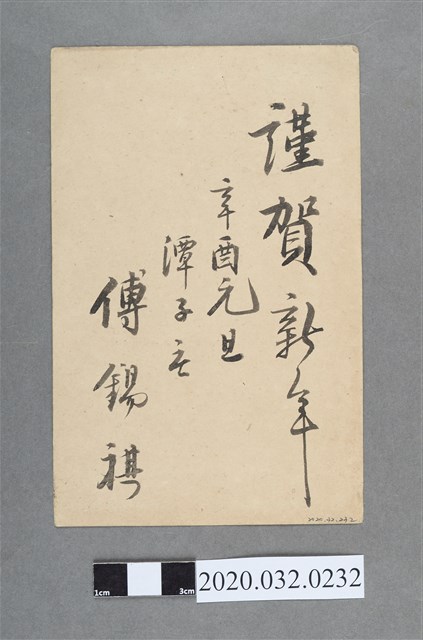 謹賀新年
辛酉元旦
潭子庄
傅錫祺
2020.032.0232
1cm 3cm
2020.032.0232